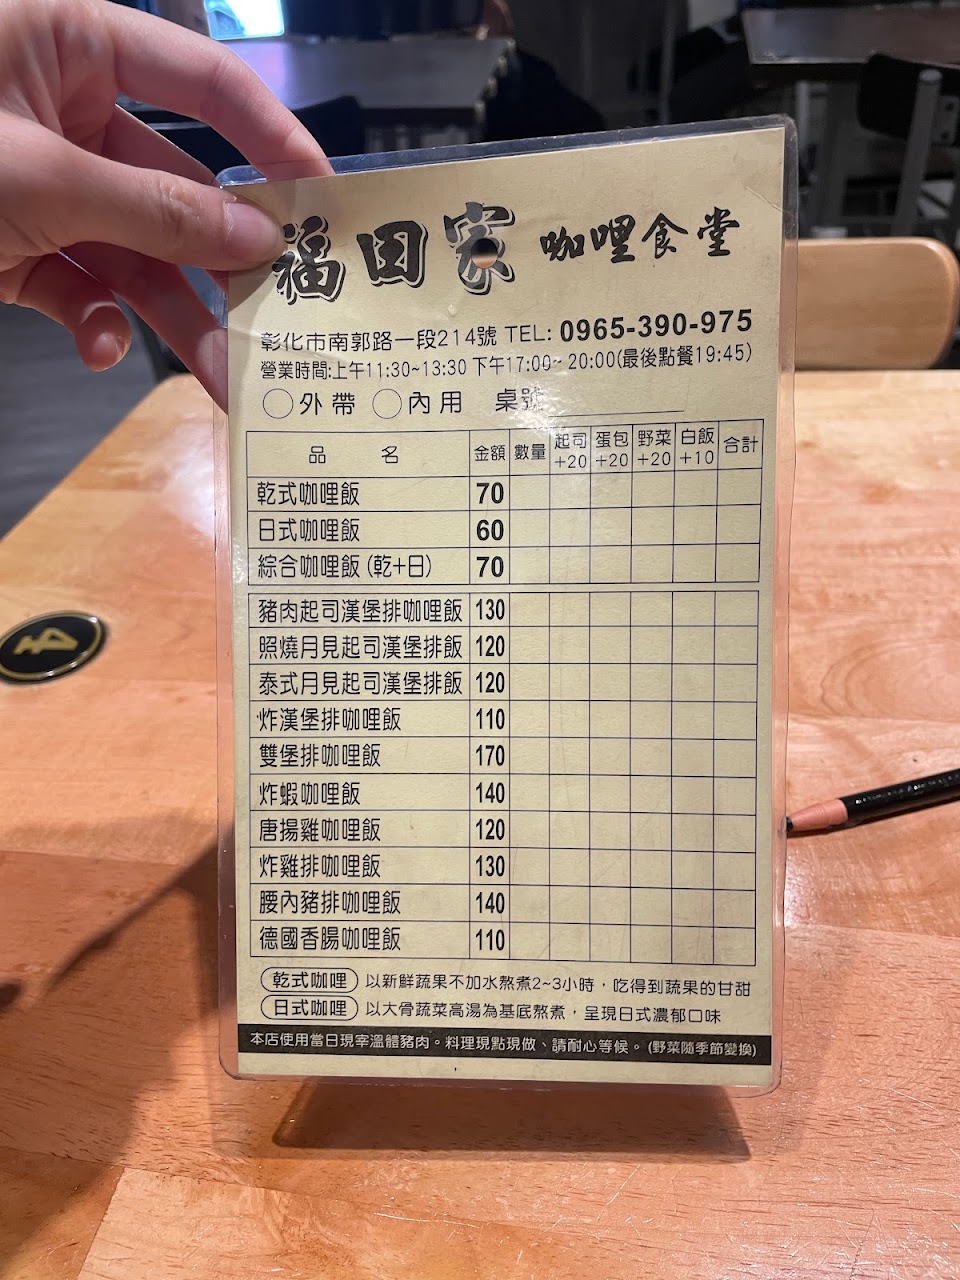 福田家 咖哩食堂
彰化市南郭路一段214號 TEL: 0965-390-975
營業時間:上午11:30~13:30 下午17:00~20:00(最後點餐19:45)
外帶 內用 桌號
品 名 金額 數量 起司+20 蛋包+20 野菜+20 白飯+10 合計
乾式咖哩飯 70
日式咖哩飯 60
綜合咖哩飯(乾+日) 70
豬肉起司漢堡排咖哩飯 130
照燒月見起司漢堡排飯 120
泰式月見起司漢堡排飯 120
炸漢堡排咖哩飯 110
雙堡排咖哩飯 170
炸蝦咖哩飯 140
唐揚雞咖哩飯 120
炸雞排咖哩飯 130
腰內豬排咖哩飯 140
德國香腸咖哩飯 110
乾式咖哩 以新鮮蔬果不加水熬煮2~3小時，吃得到蔬果的甘甜
日式咖哩 以大骨蔬菜高湯為基底熬煮，呈現日式濃郁口味
本店使用當日現宰溫體豬肉。料理現點現做、請耐心等候。(野菜隨季節變換)
4